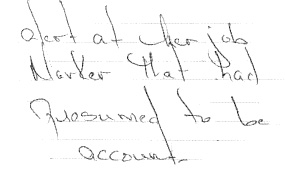 alert at her job
Worker that had
presumed to be
account.